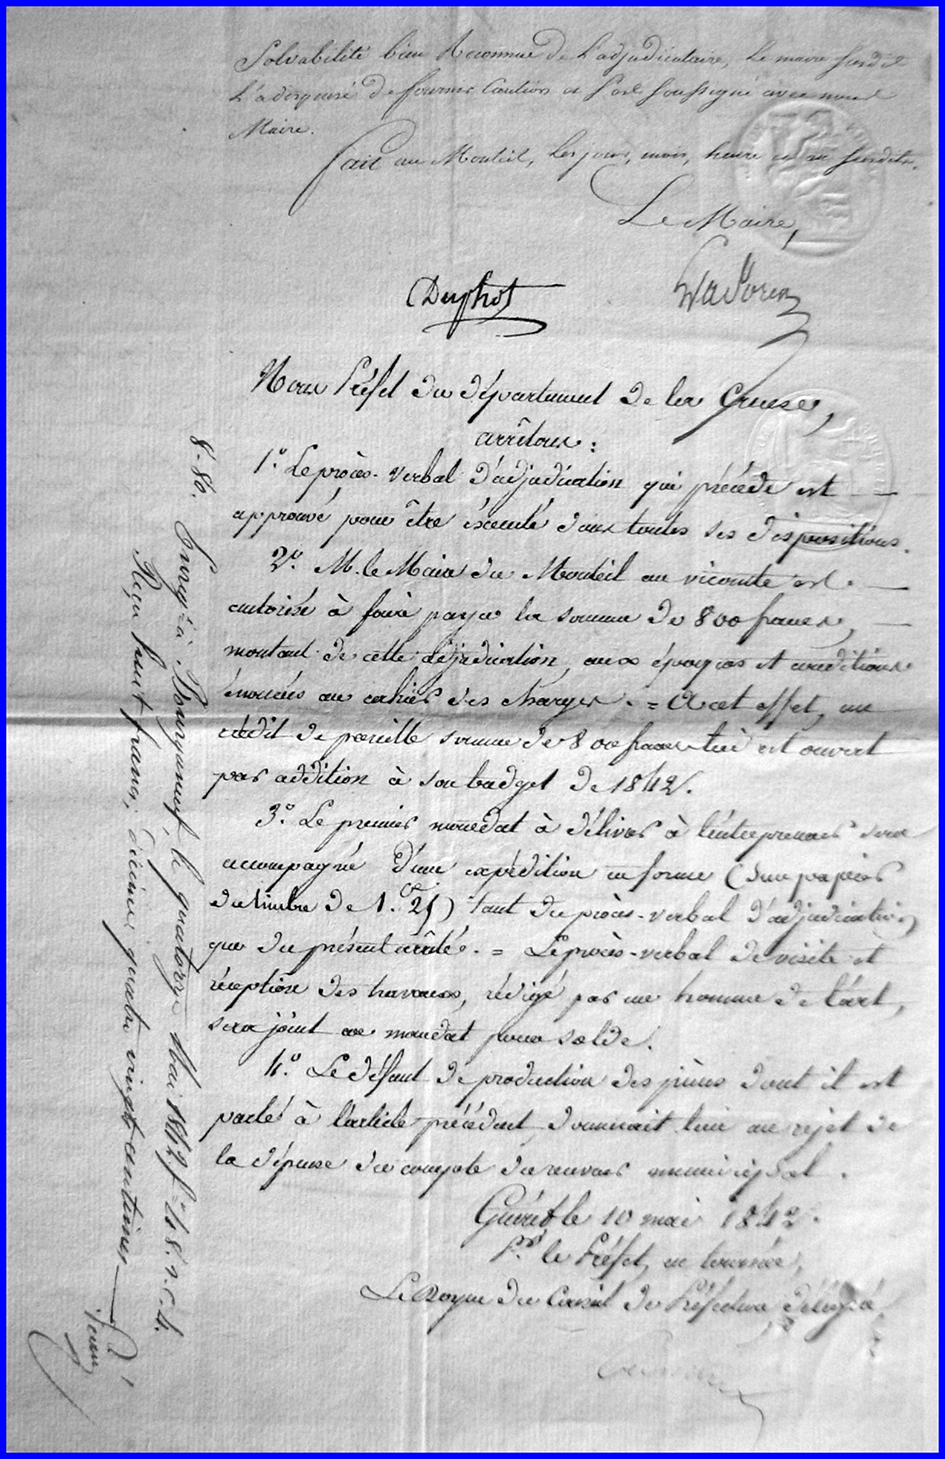 Solvabilité bien Reconnue de l'adjudicataire, le maire susdit
l'a dispensé de fournir Caution et s'est soussigné avec nous
Maire.
fait au Monteil, les jour, mois, heure et an susdits.
Le Maire,
Duphot
Nous Préfet du département de la Creuse,
arrêtons:
1.° Le procès-verbal d'adjudication qui précède est
approuvé pour être éxécuté dans toutes ses dispositions.
2.° M. le Maire du Monteil au vicomte est
autorisé à faire payer la somme de 800 francs,
montant de cette adjudication, aux époques et conditions
énoncées au cahier des charges. = A cet effet, un
crédit de pareille somme de 800 francs lui est ouvert
par addition à son budget de 1842.
3.° Le premier mandat à délivrer à l'entrepreneur sera
accompagné d'une expédition en forme (sur papier
du timbre de 1.f 25) tant du procès-verbal d'adjudication,
que du présent arrêté. = Le procès-verbal de visite et
réception des travaux, rédigé par un homme de l'art,
sera joint au mandat pour solde.
4.° Le défaut de production des pièces dont il est
parlé à l'article précédent, donnerait lieu au rejet de
la dépense du compte du receveur municipal.
Guéret le 10 mai 1842.
P.r le Préfet, en tournée,
Le Doyen du Conseil de Préfecture délégué
8.-80. Enreg.é à Bourganeuf, le quatorze Mai 1842 f.° 48. r. c. 4.
Reçu huit francs, décime quatre vingts centimes